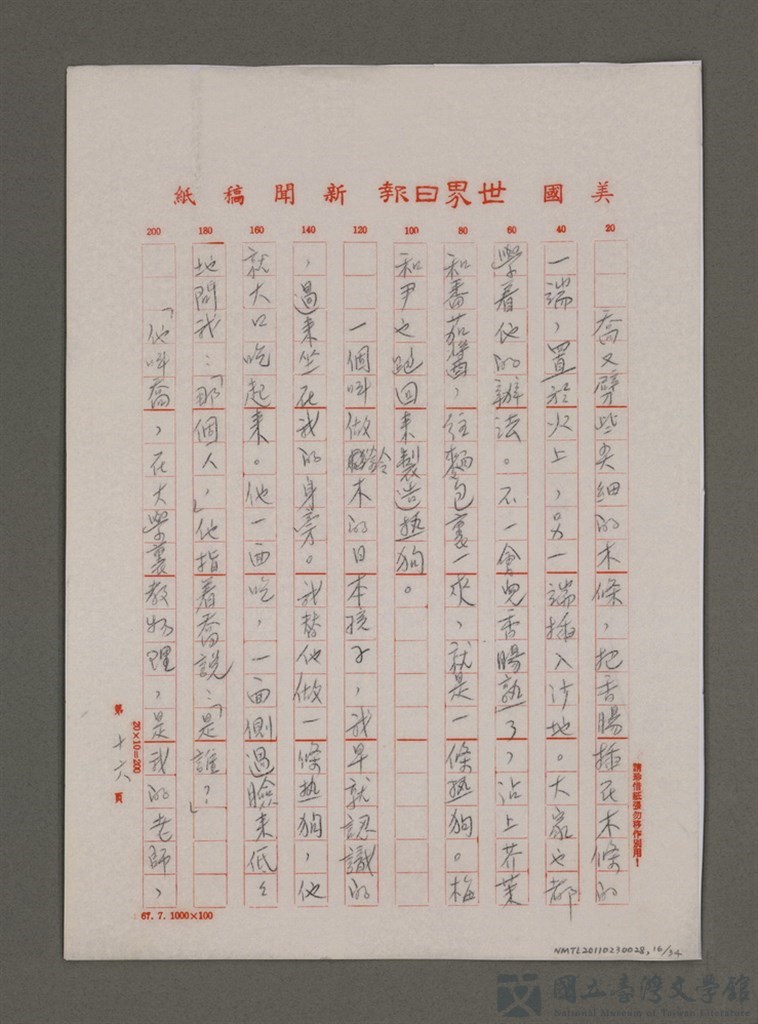 美國世界日報新聞稿紙
20 40 60 80 100 120 140 160 180 200
喬又劈些尖細的木條，把香腸插在木條的
一端，置於火上，另一端插入沙地。大家也都
學着他的辦法。不一會兒香腸熟了，沾上芥茉
和番茄醬，往麵包裏一夾，就是一條熱狗。梅
和尹也跑回來製造熱狗。
一個叫做鈴木的日本孩子，我早就認識的
，過來坐在我的身旁。我替他做一條熱狗，他
就大口吃起來。他一面吃，一面側過臉來低々
地問我：「那個人，」他指着喬說：「是誰？」
「他叫喬，在大學裏教物理，是我的老師，
請珍惜紙張勿將作別用！
20×10=200
第十六頁
67.7.1000×100
NMTL20110230028, 16/34
國立臺灣文學館
National Museum of Taiwan Literature